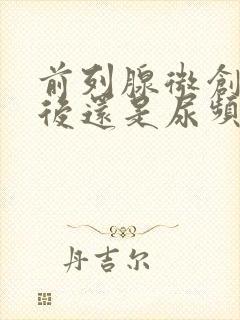 前列腺微創
後還是尿頻
丹吉尔